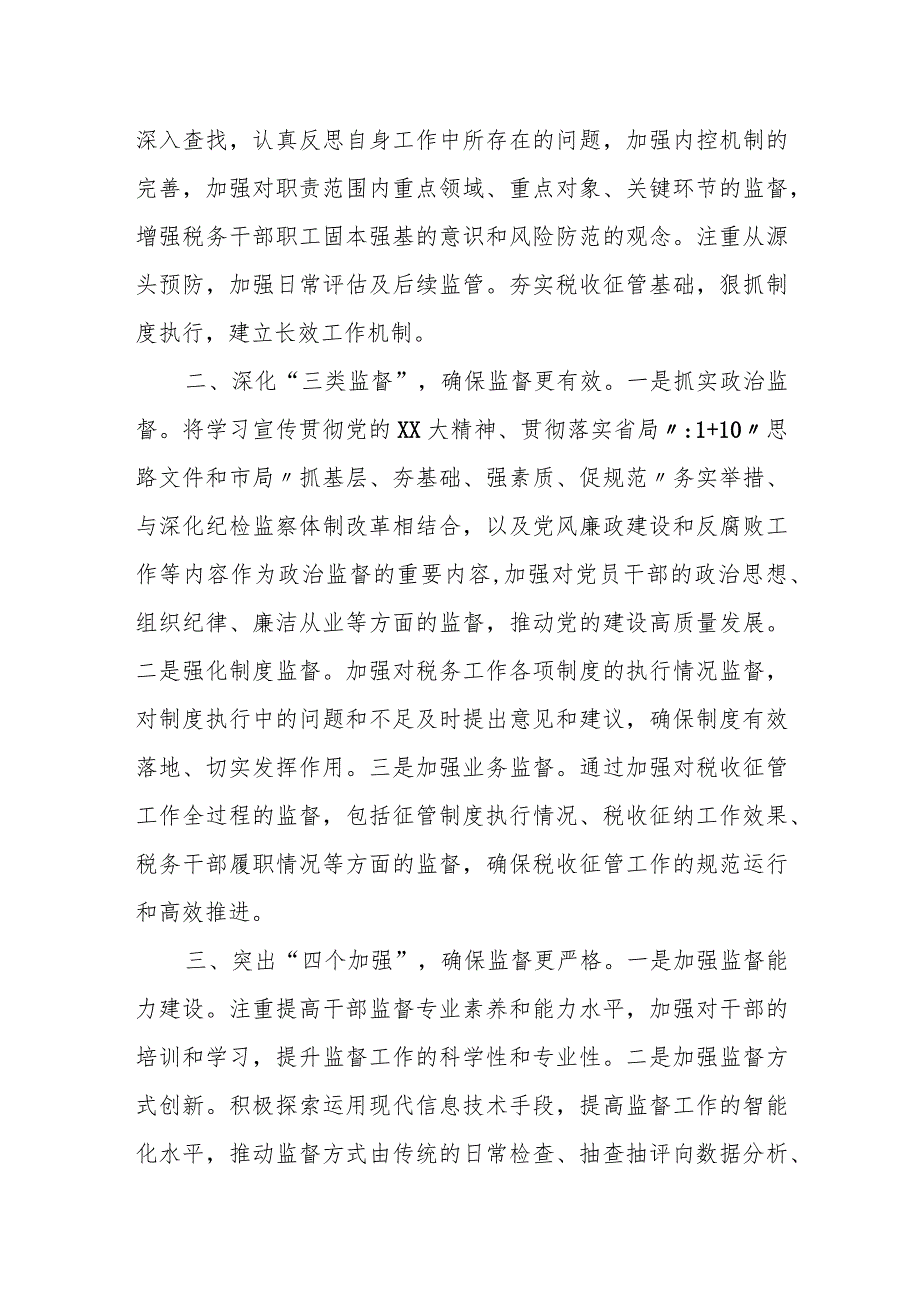 深入查找，认真反思自身工作中所存在的问题，加强内控机制的
完善，加强对职责范围内重点领域、重点对象、关键环节的监督，
增强税务干部职工固本强基的意识和风险防范的观念。注重从源
头预防，加强日常评估及后续监管。夯实税收征管基础，狠抓制
度执行，建立长效工作机制。
二、深化“三类监督”，确保监督更有效。一是抓实政治监
督。将学习宣传贯彻党的XX大精神、贯彻落实省局〃:1+10〃思
路文件和市局〃抓基层、夯基础、强素质、促规范〃务实举措、
与深化纪检监察体制改革相结合，以及党风廉政建设和反腐败工
作等内容作为政治监督的重要内容,加强对党员干部的政治思想、
组织纪律、廉洁从业等方面的监督，推动党的建设高质量发展。
二是强化制度监督。加强对税务工作各项制度的执行情况监督，
对制度执行中的问题和不足及时提出意见和建议，确保制度有效
落地、切实发挥作用。三是加强业务监督。通过加强对税收征管
工作全过程的监督，包括征管制度执行情况、税收征纳工作效果、
税务干部履职情况等方面的监督，确保税收征管工作的规范运行
和高效推进。
三、突出“四个加强”，确保监督更严格。一是加强监督能
力建设。注重提高干部监督专业素养和能力水平，加强对干部的
培训和学习，提升监督工作的科学性和专业性。二是加强监督方
式创新。积极探索运用现代信息技术手段，提高监督工作的智能
化水平，推动监督方式由传统的日常检查、抽查抽评向数据分析、